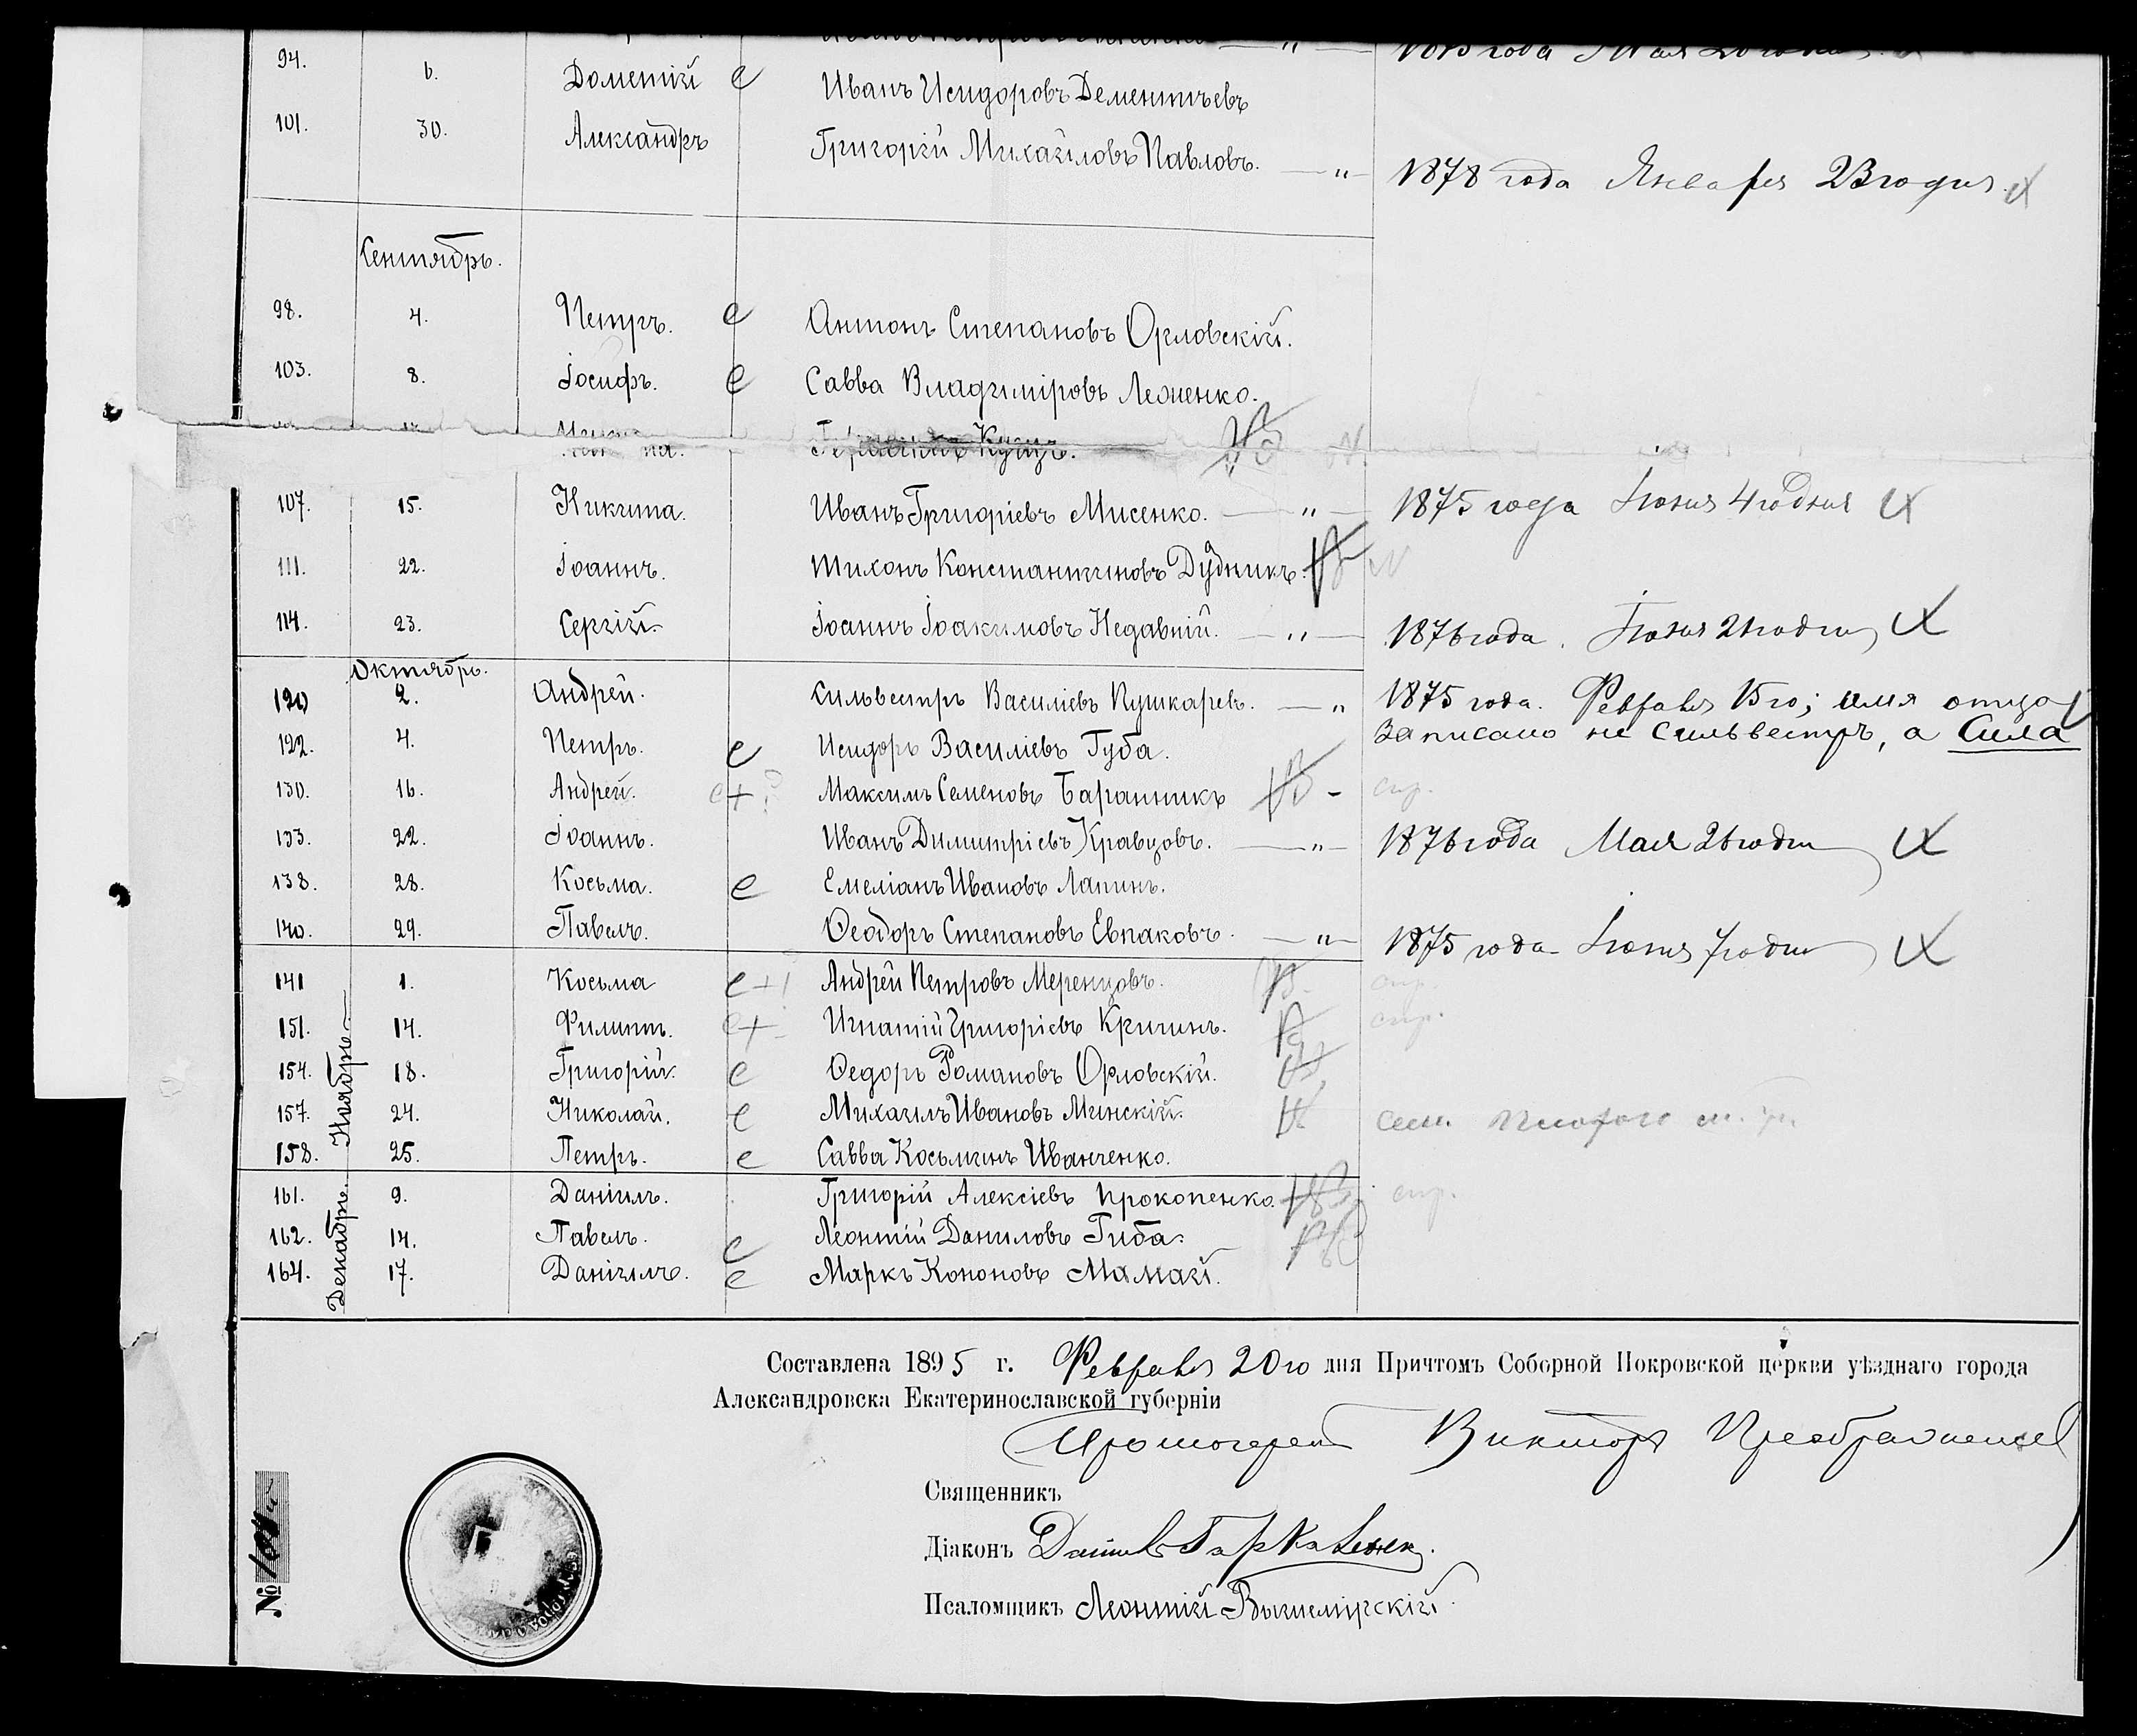 94. 6. Дометій е Иванъ Исидоровъ Дементьевъ
101. 30. Александръ Григорій Михаиловъ Павловъ. — " — 1878 года Января 23 го дня.
Сентябрь.
98. 4. Петръ. е Антонъ Степановъ Орловскій.
103. 8. Іосифъ. е Савва Владиміровъ Леоненко.
Куцъ.
107. 15. Никита. Иванъ Григоріевъ Мисенко. — " — 1875 года Іюня 4 го дня
111. 22. Іоаннъ. Тихонъ Константиновъ Дудникъ.
114. 23. Сергій. Іоаннъ Іоакимовъ Недавній. — " — 1876 года. Іюня 21 го дня
Октябрь.
120 2. Андрей. Сильвестръ Василіевъ Пушкаревъ. — " 1875 года. Февраля 15 го; имя отца
записано не Сильвестръ, а Сила
122. 4. Петръ. е Исидоръ Василіевъ Губа.
130. 16. Андрей. е+ Максимъ Семеновъ Баранникъ спр.
133. 22. Іоаннъ. Иванъ Димитріевъ Кравцовъ. — " — 1876 года Мая 26 го дня
138. 28. Косьма. е Емеліанъ Ивановъ Лапинъ.
140. 29. Павелъ. Ѳеодоръ Степановъ Евпаковъ. — " — 1875 года Іюня 7 го дня
Ноябрь.
141 1. Косьма е+ Андрей Петровъ Меренцовъ. спр.
151. 14. Филиппъ. е+ Игнатій Григоріевъ Кричинъ. спр.
154. 18. Григорій. е Ѳедоръ Романовъ Орловскій.
157. 24. Николай. е Михаилъ Ивановъ Минскій.
158. 25. Петръ. е Савва Косьминъ Иванченко.
Декабрь.
161. 9. Даніилъ. Григорій Алексіевъ Прокопенко. спр.
162. 14. Павелъ. е Леонтій Даниловъ Гиба.
164. 17. Даніилъ. е Маркъ Кононовъ Мамай.
Составлена 1895 г. Февраля 20 го дня Причтомъ Соборной Покровской церкви уѣзднаго города
Александровска Екатеринославской губерніи
Протоіерей Викторъ Преображенскій
Священникъ
Діаконъ
Псаломщикъ Леонтій
№